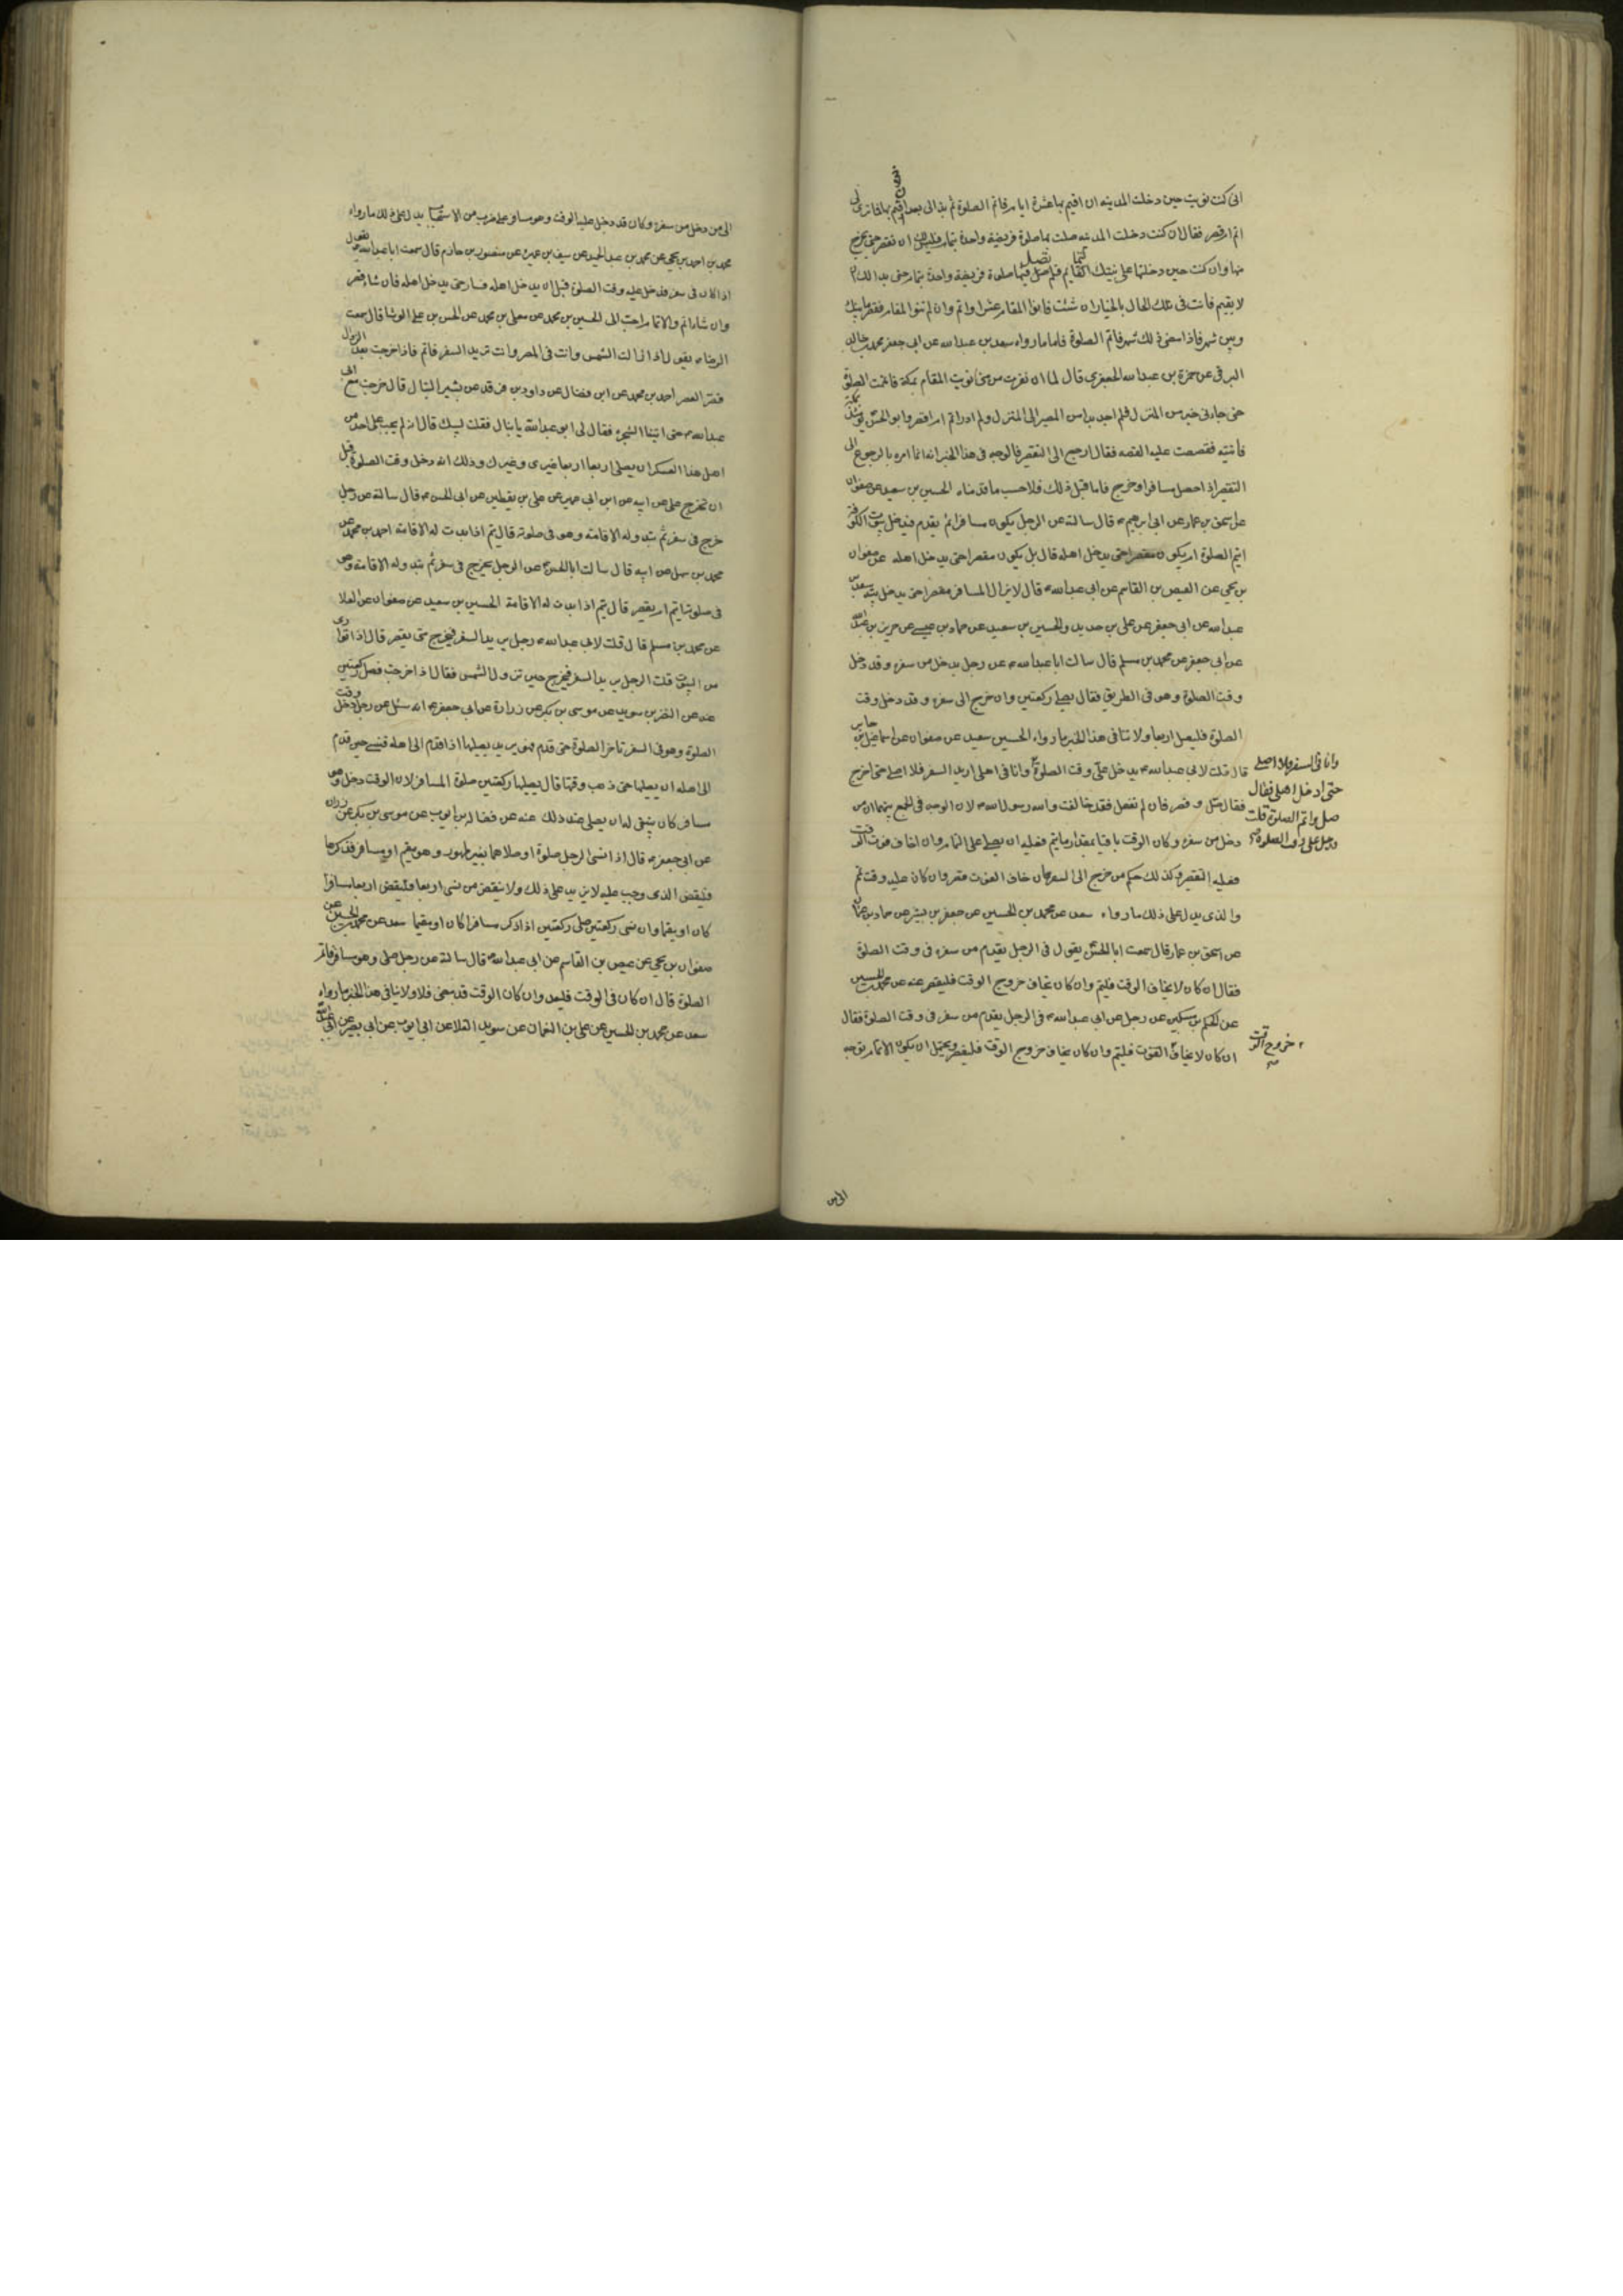 انى كنت نويت حين دخلت المدينه ان اقيم بها عشرة ايام فاتم الصلوة ثم بدا لى بعد ان اقيم بها فما ترى لى
اتم ام اقصر فقال ان كنت دخلت المدينه صليت بها صلوة فريضة واحدة بتمام فليس لك ان تقصر حتى تخرج
منها وان كنت حين دخلتها على نيتك التمام فلم تصل فيها صلوة فريضة واحدة بتمام حتى بدا لك ان
لا تقيم فانت فى تلك الحال بالخيار ان شئت فانو المقام عشرا واتم وان لم تنو المقام فقصر ما بينك
وبين شهر فاذا مضى لك شهر فاتم الصلوة فاما ما رواه سعد بن عبد الله عن ابى جعفر محمد بن خالد
البرقى عن حمزة بن عبد الله الجعفرى قال لما ان نفرت من منى نويت المقام بمكة فاتممت الصلوة
حتى جاءنى خبر من المنزل فلم اجد بدا من المصير الى المنزل ولم ادر اتم ام اقصر وابو الحسن يومئذ بمكة
فاتيته فقصصت عليه القصه فقال ارجع الى التقصير فالوجه فى هذا الخبر انه انما امره بالرجوع الى
التقصير اذا حصل مسافرا وخرج فاما قبل ذلك فلا حسب ما قدمناه الحسين بن سعيد عن صفوان
عن اسحق بن عمار عن ابى ابرهيم قال سالته عن الرجل يكون مسافرا ثم يقدم فيدخل بيوت الكوفة
ايتم الصلوة ام يكون مقصرا حتى يدخل اهله قال بل يكون مقصرا حتى يدخل اهله عنه عن صفوان
بن يحيى عن العيص بن القاسم عن ابى عبد الله قال لا يزال المسافر مقصرا حتى يدخل بيته سعد بن
عبد الله عن ابى جعفر عن على بن حديد والحسين بن سعيد عن حماد بن عيسى عن حريز بن عبد الله
عن ابى جعفر عن محمد بن مسلم قال سالت ابا عبد الله عن رجل يدخل من سفره وقد دخل
وقت الصلوة وهو فى الطريق فقال يصلى ركعتين وان خرج الى سفره وقد دخل وقت
الصلوة فليصل اربعا ولا ينافى هذا الخبر ما رواه الحسين سعيد عن صفوان عن اسماعيل بن جابر
قال قلت لابى عبد الله يدخل على وقت الصلوة وانا فى اهلى اريد السفر فلا اصلى حتى اخرج
وانا فى السفر فلا اصلى
حتى ادخل اهلى فقال
صل واتم الصلوة قلت
دخل على وقت الصلوة
فقال صل وقصر فان لم تفعل فقد خالفت والله رسول الله لان الوجه فى الجمع بينهما ان من
دخل من سفره وكان الوقت باقيا بمقدار ما يتم فعليه ان يصلى على التمام وان خاف فوت الوقت
فعليه التقصير وكذلك حكم من خرج الى السفر فان خاف الفوت قصر وان كان عليه وقت تم
والذى يدل على ذلك ما رواه سعد عن محمد بن الحسين عن جعفر بن بشير عن حماد بن عثمان
عن اسحق بن عمار قال سمعت ابا الحسن يقول فى الرجل يقدم من سفره فى وقت الصلوة
فقال ان كان لا يخاف الوقت فليتم وان كان يخاف خروج الوقت فليقصر عنه عن محمد بن الحسين
عن الحكم بن مسكين عن رجل عن ابى عبد الله فى الرجل يقدم من سفر فى وقت الصلوة فقال
ان كان لا يخاف الفوت فليتم وان كان يخاف خروج الوقت فليقصر ويحتمل ان يكون الاتمام توجه
خروج الوقت
الى من
الى من دخل من سفره وكان قد دخل عليه الوقت وهو مسافر على ضرب من الاستحباب يدل على ذلك ما رواه
محمد بن احمد بن يحيى عن محمد بن عبد الحميد عن سيف بن عميرة عن منصور بن حازم قال سمعت ابا عبد الله يقول
اذا كان فى سفر فدخل عليه وقت الصلوة قبل ان يدخل اهله فسار حتى يدخل اهله فان شاء قصر
وان شاء اتم والاتمام احب الى الحسين بن محمد عن معلى بن محمد عن الحسن بن على الوشا قال سمعت
الرضا يقول اذا زالت الشمس وانت فى المصر وانت تريد السفر فاتم فاذا خرجت بعد الزوال
قصر العصر احمد بن محمد عن ابن فضال عن داود بن فرقد عن بشير النبال قال خرجت مع ابى
عبد الله حتى اتينا الشجرة فقال لى ابو عبد الله يا نبال فقلت لبيك قال انه لم يجب على احد من
اهل هذا العسكر ان يصلى اربعا اربعا غيرى وغيرك وذلك انه دخل وقت الصلوة قبل
ان نخرج على عن ابيه عن ابن ابى عمير عن على بن يقطين عن ابى الحسن قال سالته عن رجل
خرج فى سفر ثم تبدو له الاقامة وهو فى صلوته قال يتم اذا بدت له الاقامة احمد بن محمد عن
محمد بن سهل عن ابيه قال سالت ابا الحسن عن الرجل يخرج فى سفر ثم تبدو له الاقامة وهو
فى صلوته ايتم ام يقصر قال يتم اذا بدت له الاقامة الحسين بن سعيد عن صفوان عن العلا
عن محمد بن مسلم قال قلت لابى عبد الله رجل يريد السفر فيخرج متى يقصر قال اذا توارى
من البيوت قلت الرجل يريد السفر فيخرج حين تزول الشمس فقال اذا خرجت فصل ركعتين
عنه عن النضر بن سويد عن موسى بن بكر عن زرارة عن ابى جعفر انه سئل عن رجل دخل وقت
الصلوة وهو فى السفر فاخر الصلوة حتى قدم فهو يريد يصليها اذا قدم الى اهله فنسى حين قدم
الى اهله ان يصليها حتى ذهب وقتها قال يصليها ركعتين صلوة المسافر لان الوقت دخل وهو
مسافر كان ينبغى له ان يصلى عند ذلك عنه عن فضالة بن ايوب عن موسى بن بكر عن زرارة
عن ابى جعفر قال اذا نسى الرجل صلوة او صلاها بغير طهور وهو مقيم او مسافر فذكرها
فليقض الذى وجب عليه لا يزيد على ذلك ولا ينقص من نسى اربعا فليقض اربعا مسافرا
كان او مقيما وان نسى ركعتين صلى ركعتين اذا ذكر مسافرا كان او مقيما سعد عن محمد بن الحسين عن
صفوان بن يحيى عن عيص بن القاسم عن ابى عبد الله قال سالته عن رجل صلى وهو مسافر فاتم
الصلوة قال ان كان فى الوقت فليعد وان كان الوقت قد مضى فلا ولا ينافى هذا الخبر ما رواه
سعد عن محمد بن الحسين عن على بن النعمان عن سويد القلا عن ابى ايوب عن ابى بصير عن ابى عبد الله